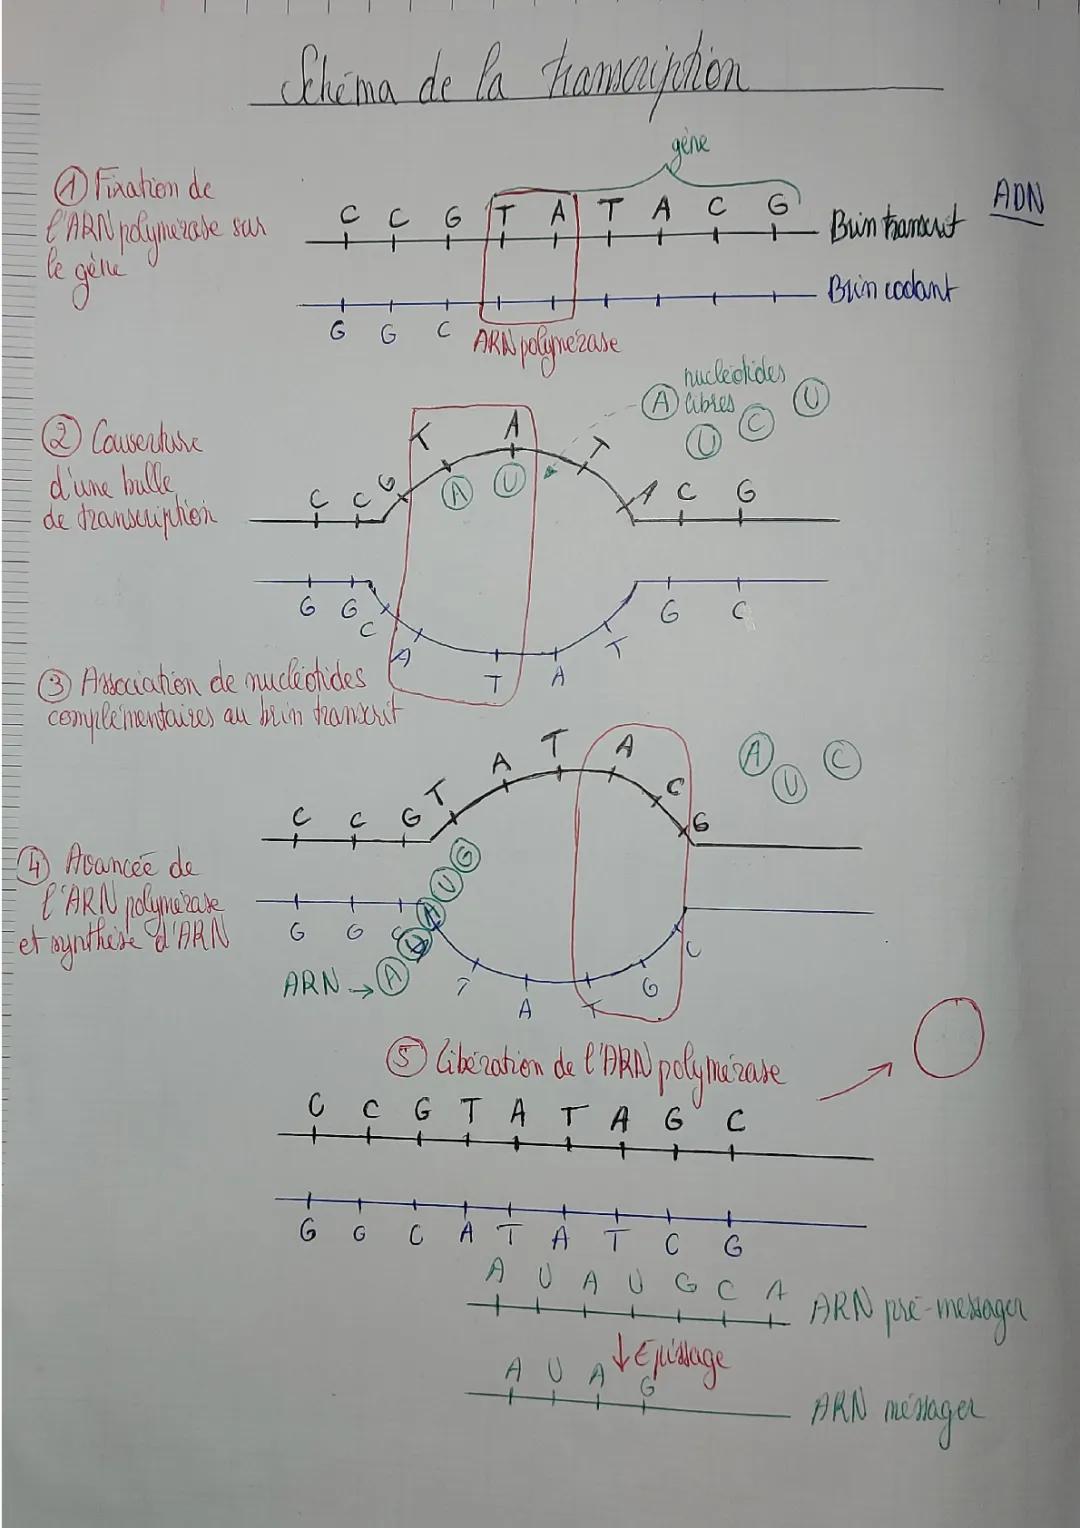 Schéma de la transcription
gène
① Fixation de
l'ARN polymérase sur
le gène
C C G T A T A C G
Brin transcrit
ADN
Brin codant
G G C
ARN polymérase
nucléotides
libres
A U C U
② Couverture
d'une bulle
de transcription
C C G T A T A C G
A U
G G C A T A T G C
③ Association de nucléotides
complémentaires au brin transcrit
C C G T A T A C G
A U C
④ Avancée de
l'ARN polymérase
et synthèse d'ARN
A U A U G
G G C T A T G C
ARN →
⑤ Libération de l'ARN polymérase
C C G T A T A G C
G G C A T A T C G
A U A U G C A
ARN pré-messager
↓ Epissage
A U A G
ARN messager